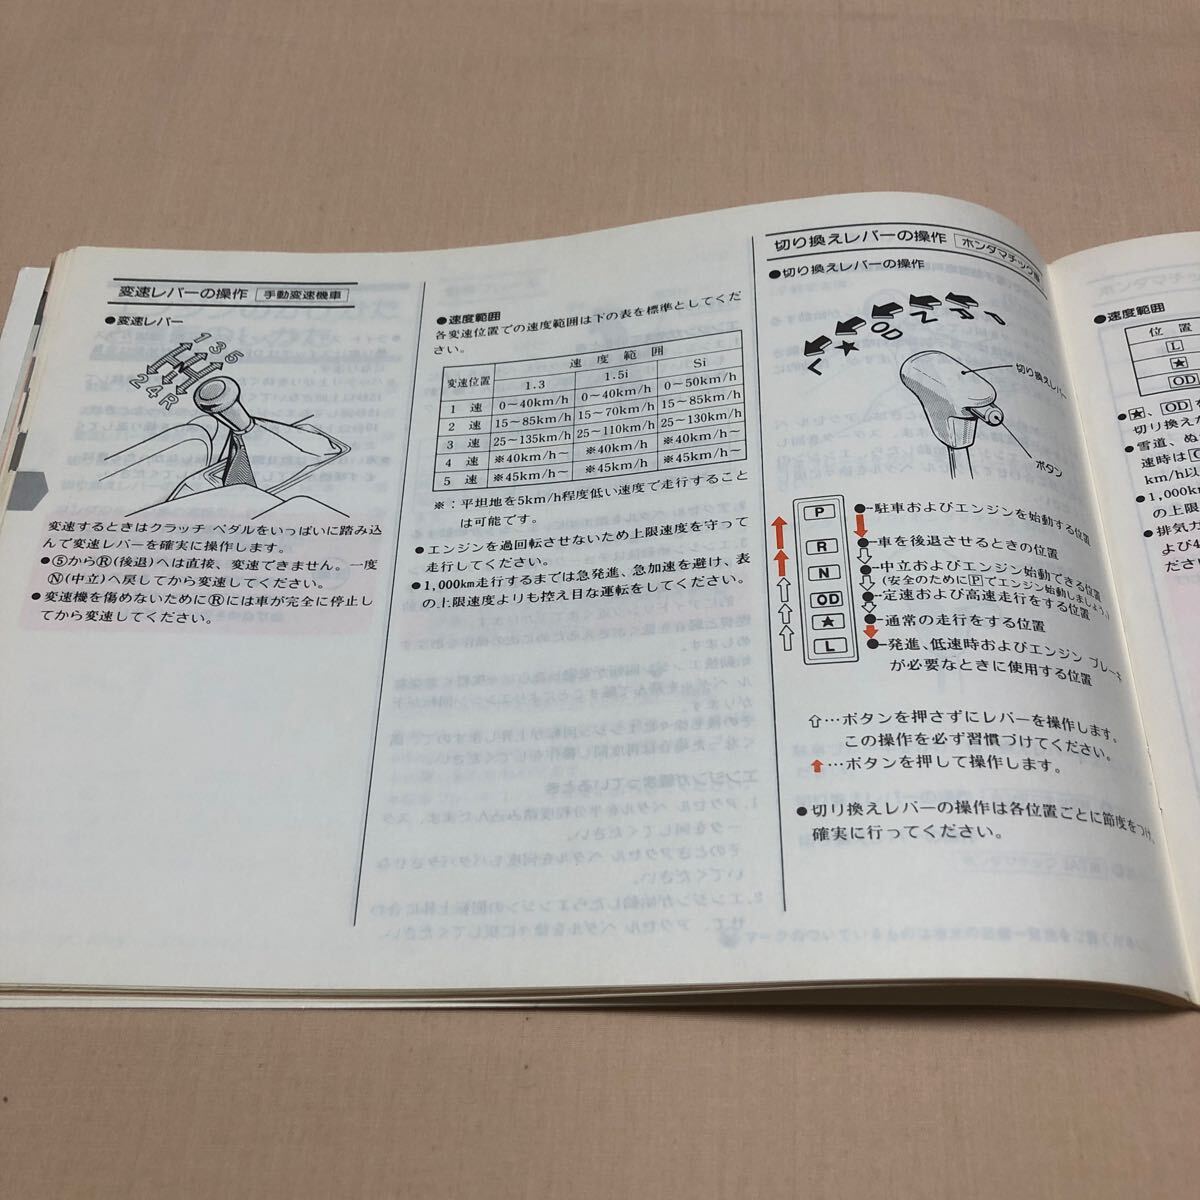 変速レバーの操作 手動変速機車
●変速レバー
1 3 5
N
2 4 R
変速するときはクラッチ ペダルをいっぱいに踏み込
んで変速レバーを確実に操作します。
●⑤からⓇ(後退)へは直接、変速できません。一度
Ⓝ(中立)へ戻してから変速してください。
●変速機を傷めないためにⓇには車が完全に停止し
てから変速してください。
●速度範囲
各変速位置での速度範囲は下の表を標準としてくだ
さい。
変速位置 速度範囲
1.3 1.5i Si
1 速 0~40km/h 0~40km/h 0~50km/h
2 速 15~85km/h 15~70km/h 15~85km/h
3 速 25~135km/h 25~110km/h 25~130km/h
4 速 ※40km/h~ ※40km/h ※40km/h~
5 速 ※45km/h~ ※45km/h ※45km/h~
※:平坦地を5km/h程度低い速度で走行すること
は可能です。
●エンジンを過回転させないため上限速度を守って
走行してください。
●1,000km走行するまでは急発進、急加速を避け、表
の上限速度よりも控え目な運転をしてください。
切り換えレバーの操作 ホンダマチック車
●切り換えレバーの操作
L ★ OD N R P
切り換えレバー
ボタン
P ●-駐車およびエンジンを始動する位置
R ●-車を後退させるときの位置
N ●-中立およびエンジン始動できる位置
(安全のためにPでエンジン始動しましょう。)
OD ●-定速および高速走行をする位置
★ ●-通常の走行をする位置
L ●-発進、低速時およびエンジン ブレーキ
が必要なときに使用する位置
⇧…ボタンを押さずにレバーを操作します。
この操作を必ず習慣づけてください。
⬆…ボタンを押して操作します。
●切り換えレバーの操作は各位置ごとに節度をつけ、
確実に行ってください。
ホンダマチック
●速度範囲
位 置
L
★
OD
●★、ODを
切り換え
●雪道、ぬ
速時は
km/h以
●1,000k
の上限
●排気ガ
よび4
ださい